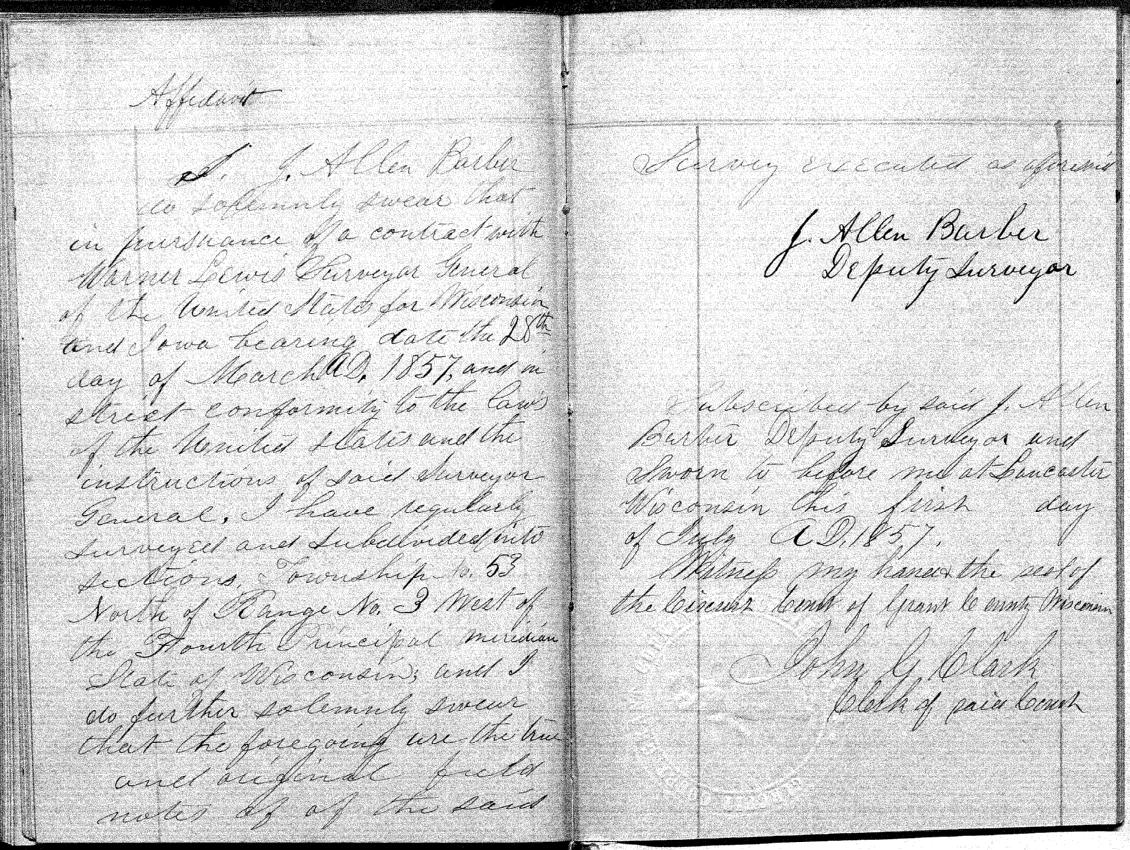 Affidavit
I. J. Allen Barber
do solemnly swear that
in pursuance of a contract with
Warner Lewis Surveyor General
of the United States for Wisconsin
and Iowa bearing date the 28th
day of March AD. 1857, and in
strict conformity to the laws
of the United States and the
instructions of said Surveyor
General, I have regularly
surveyed and subdivided into
sections, Township No. 53
North of Range No. 3 West of
the Fourth Principal meridian
State of Wisconsin; and I
do further solemnly swear
that the foregoing are the true
and original field
notes of of the said
Survey executed as aforesaid
J. Allen Barber
Deputy Surveyor
Subscribed by said J. Allen
Barber Deputy Surveyor and
Sworn to before me at Lancaster
Wisconsin this first day
of July A D. 1857.
Witness my hand & the seal of
the Circuit Court of Grant County Wisconsin
John G Clark
Clerk of said Court